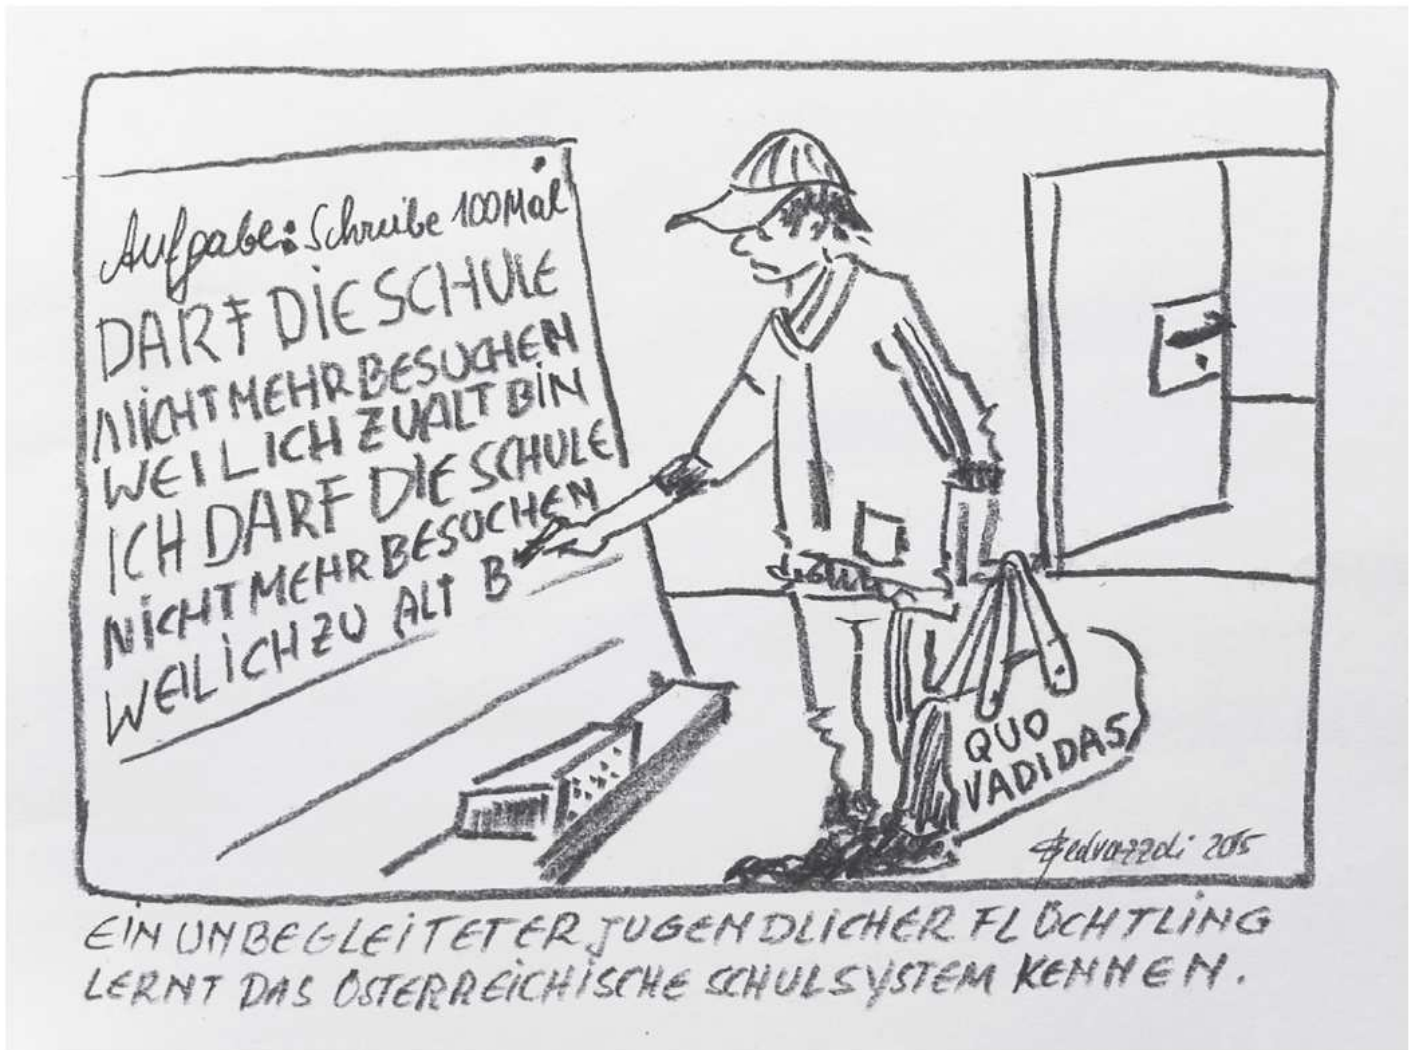 Aufgabe: Schreibe 100 Mal
DARF DIE SCHULE
NICHT MEHR BESUCHEN
WEIL ICH ZU ALT BIN
ICH DARF DIE SCHULE
NICHT MEHR BESUCHEN
WEIL ICH ZU ALT B
QUO
VADIDAS
Pedrazzoli 2015
EIN UNBEGLEITETER JUGENDLICHER FLÜCHTLING
LERNT DAS ÖSTERREICHISCHE SCHULSYSTEM KENNEN.